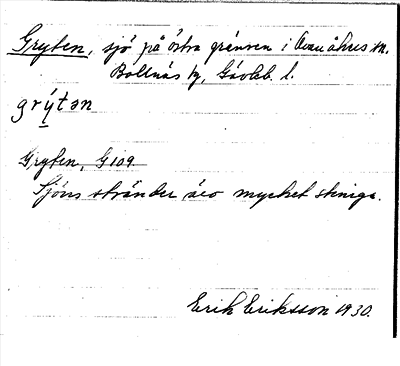 Gryten, sjö på östra gränsen i Ovanåkers sn.
Bollnäs tg, Gävleb. l.
grýtən
Gryten, G 109
Sjöns stränder äro mycket steniga.
Erik Eriksson 1930.